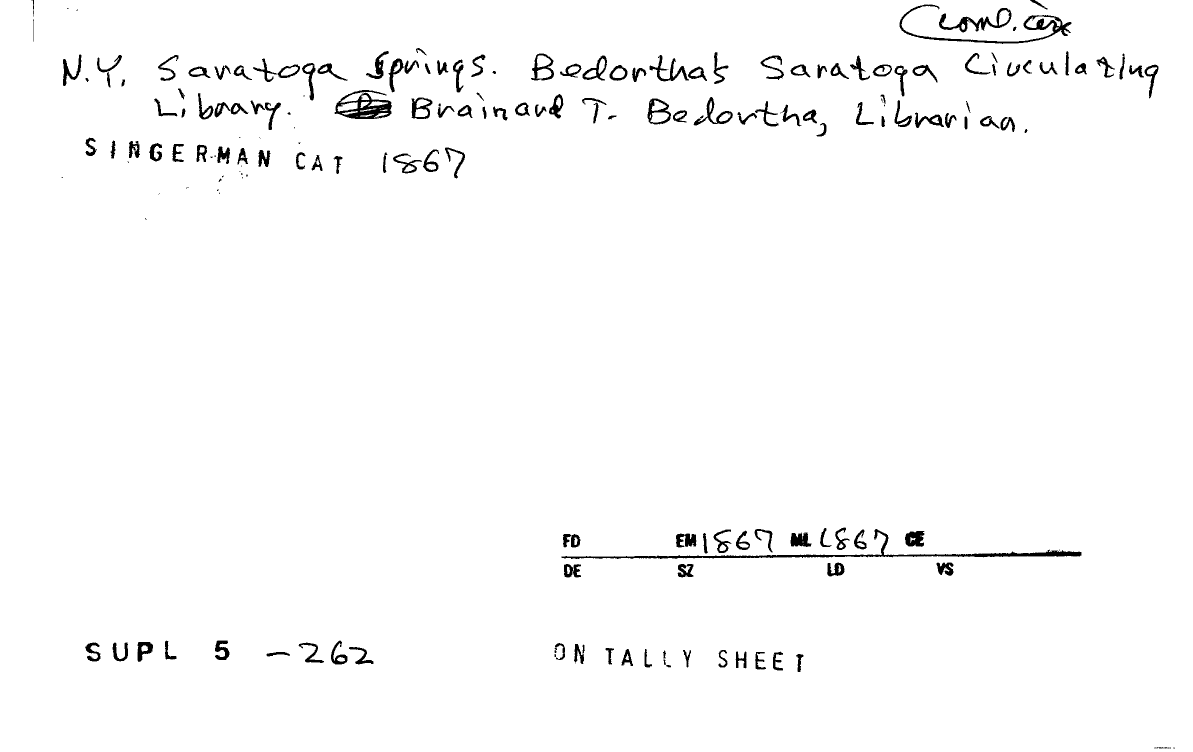 Comp. cir
N.Y. Saratoga Springs. Bedortha's Saratoga Circulating
Library. Brainard T. Bedortha, Librarian.
SINGERMAN CAT 1867
FD EM 1867 ML 1867 CE
DE SZ LD VS
SUPL 5 -262 ON TALLY SHEET